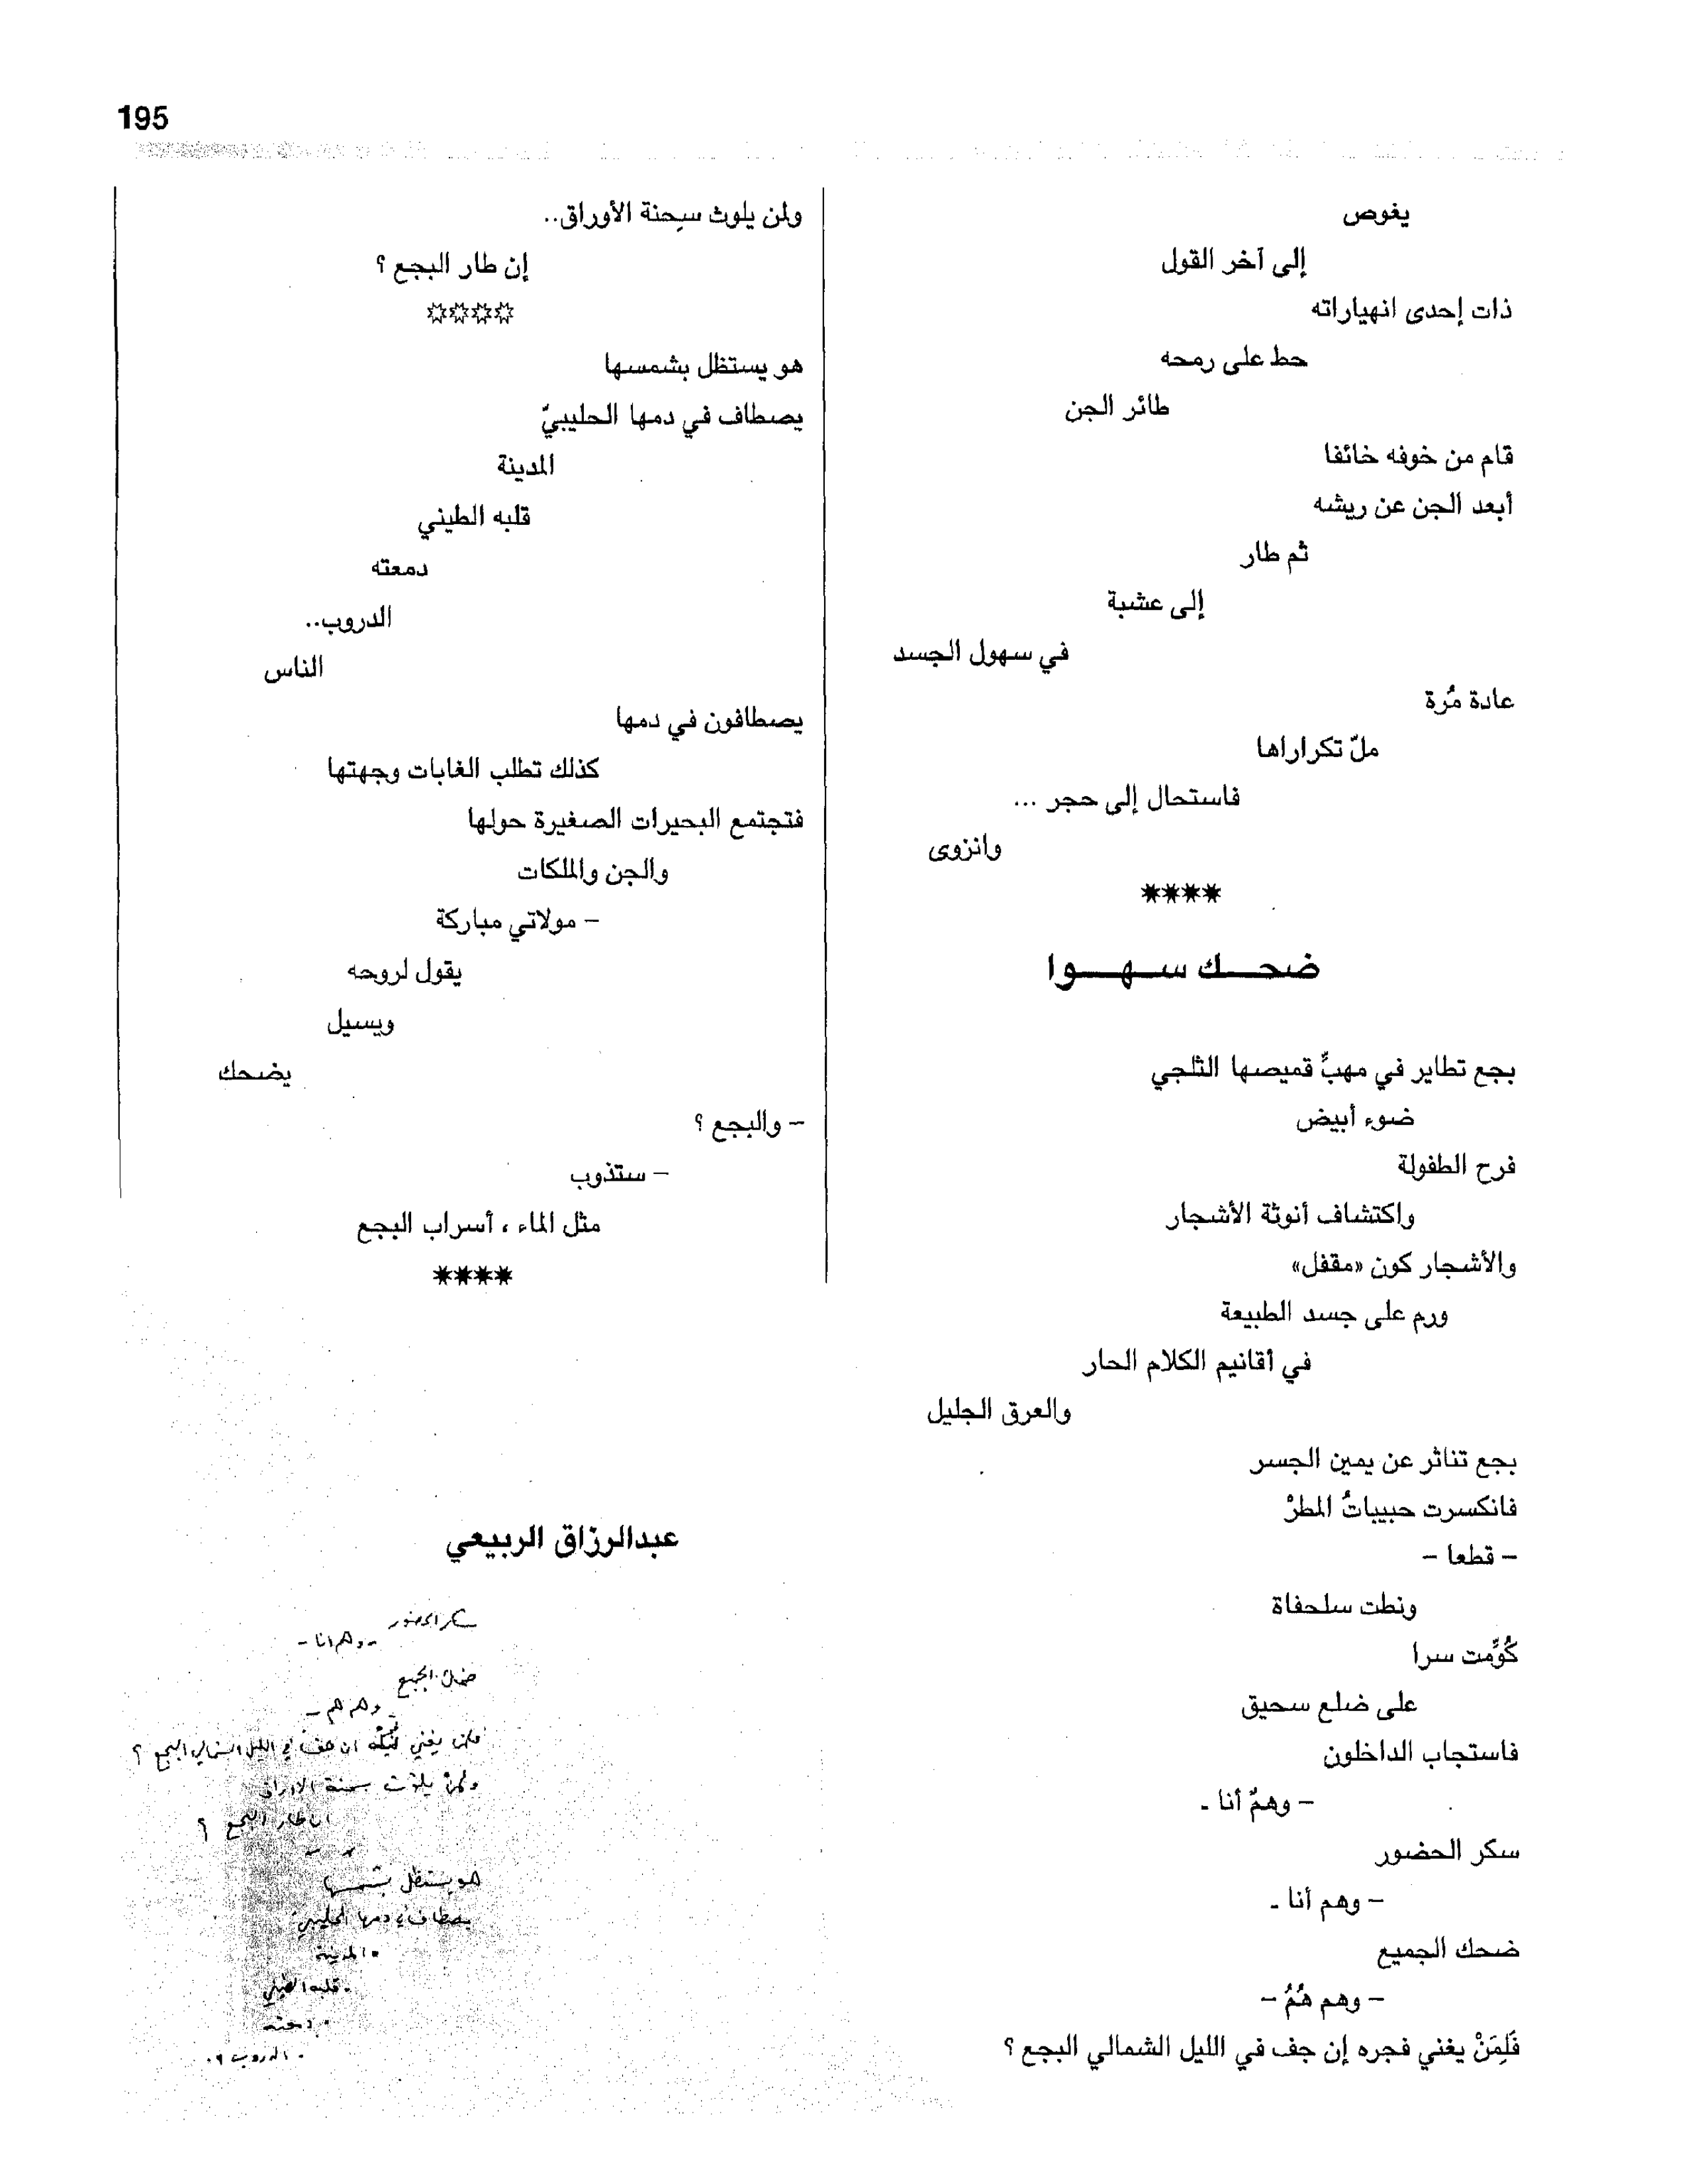 195
يغوص
إلى آخر القول
ذات إحدى انهياراته
حط على رمحه
طائر الجن
قام من خوفه خائفا
أبعد الجن عن ريشه
ثم طار
إلى عشبة
في سهول الجسد
عادة مُرة
ملّ تكراراها
فاستحال إلى حجر ...
وانزوى
****
ضحك سهوا
بجع تطاير في مهبِّ قميصها الثلجي
ضوء أبيض
فرح الطفولة
واكتشاف أنوثة الأشجار
والأشجار كون «مقفل»
ورم على جسد الطبيعة
في أقانيم الكلام الحار
والعرق الجليل
بجع تناثر عن يمين الجسر
فانكسرت حبيباتُ المطرْ
– قطعا –
ونطت سلحفاة
كُوِّمت سرا
على ضلع سحيق
فاستجاب الداخلون
– وهمٌ أنا -
سكر الحضور
– وهم أنا -
ضحك الجميع
– وهم هُمُ –
فَلِمَنْ يغني فجره إن جف في الليل الشمالي البجع ؟
ولمن يلوث سِحنة الأوراق..
إن طار البجع ؟
****
هو يستظل بشمسها
يصطاف في دمها الحليبيّ
المدينة
قلبه الطيني
دمعته
الدروب..
الناس
يصطافون في دمها
كذلك تطلب الغابات وجهتها
فتجتمع البحيرات الصغيرة حولها
والجن والملكات
– مولاتي مباركة
يقول لروحه
ويسيل
يضحك
– والبجع ؟
– ستذوب
مثل الماء ، أسراب البجع
****
عبدالرزاق الربيعي
سكر الحضور
- وهم أنا -
ضحك الجميع
- وهم هم -
فلمن يغني إن جف في الليل الشمالي البجع ؟
ولمن يلوث سحنة الاوراق
ان طار البجع ؟
هو يستظل بشمسها
يصطاف في دمها الحليبي
المدينة
قلبه الطيني
دمعته
الدروب